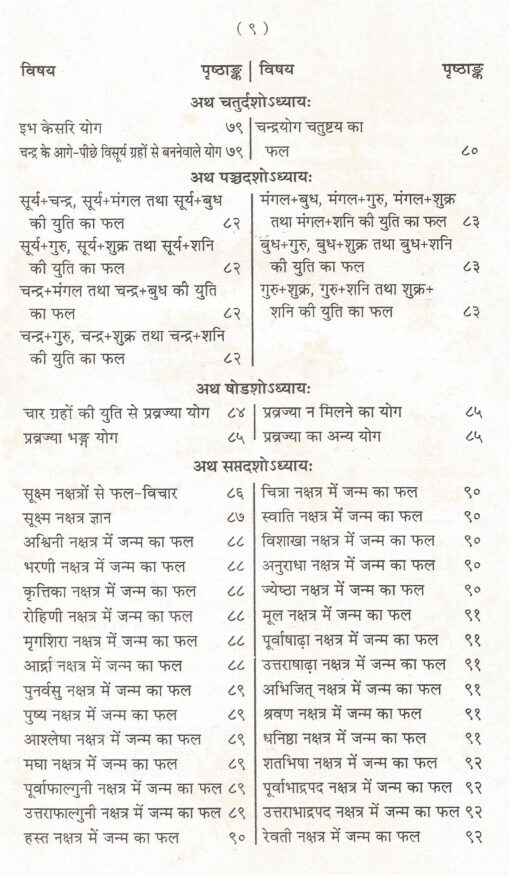 ( ९ )
विषय पृष्ठाङ्क
विषय पृष्ठाङ्क
अथ चतुर्दशोऽध्यायः
इभ केसरि योग ७९
चन्द्र के आगे-पीछे विसूर्य ग्रहों से बननेवाले योग ७९
चन्द्रयोग चतुष्टय का
फल ८०
अथ पञ्चदशोऽध्यायः
सूर्य+चन्द्र, सूर्य+मंगल तथा सूर्य+बुध
की युति का फल ८२
सूर्य+गुरु, सूर्य+शुक्र तथा सूर्य+शनि
की युति का फल ८२
चन्द्र+मंगल तथा चन्द्र+बुध की युति
का फल ८२
चन्द्र+गुरु, चन्द्र+शुक्र तथा चन्द्र+शनि
की युति का फल ८२
मंगल+बुध, मंगल+गुरु, मंगल+शुक्र
तथा मंगल+शनि की युति का फल ८३
बुध+गुरु, बुध+शुक्र तथा बुध+शनि
की युति का फल ८३
गुरु+शुक्र, गुरु+शनि तथा शुक्र+
शनि की युति का फल ८३
अथ षोडशोऽध्यायः
चार ग्रहों की युति से प्रव्रज्या योग ८४
प्रव्रज्या भङ्ग योग ८५
प्रव्रज्या न मिलने का योग ८५
प्रव्रज्या का अन्य योग ८५
अथ सप्तदशोऽध्यायः
सूक्ष्म नक्षत्रों से फल-विचार ८६
सूक्ष्म नक्षत्र ज्ञान ८७
अश्विनी नक्षत्र में जन्म का फल ८८
भरणी नक्षत्र में जन्म का फल ८८
कृत्तिका नक्षत्र में जन्म का फल ८८
रोहिणी नक्षत्र में जन्म का फल ८८
मृगशिरा नक्षत्र में जन्म का फल ८८
आर्द्रा नक्षत्र में जन्म का फल ८८
पुनर्वसु नक्षत्र में जन्म का फल ८९
पुष्य नक्षत्र में जन्म का फल ८९
आश्लेषा नक्षत्र में जन्म का फल ८९
मघा नक्षत्र में जन्म का फल ८९
पूर्वाफाल्गुनी नक्षत्र में जन्म का फल ८९
उत्तराफाल्गुनी नक्षत्र में जन्म का फल ८९
हस्त नक्षत्र में जन्म का फल ९०
चित्रा नक्षत्र में जन्म का फल ९०
स्वाति नक्षत्र में जन्म का फल ९०
विशाखा नक्षत्र में जन्म का फल ९०
अनुराधा नक्षत्र में जन्म का फल ९०
ज्येष्ठा नक्षत्र में जन्म का फल ९०
मूल नक्षत्र में जन्म का फल ९१
पूर्वाषाढ़ा नक्षत्र में जन्म का फल ९१
उत्तराषाढ़ा नक्षत्र में जन्म का फल ९१
अभिजित् नक्षत्र में जन्म का फल ९१
श्रवण नक्षत्र में जन्म का फल ९१
धनिष्ठा नक्षत्र में जन्म का फल ९१
शतभिषा नक्षत्र में जन्म का फल ९२
पूर्वाभाद्रपद नक्षत्र में जन्म का फल ९२
उत्तराभाद्रपद नक्षत्र में जन्म का फल ९२
रेवती नक्षत्र में जन्म का फल ९२